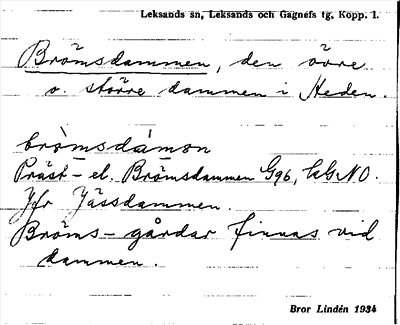 Leksands sn, Leksands och Gagnefs tg, Kopp. l.
Brömsdammen, den övre
o. större dammen i Heden.
brö̀msdámən
Präst- el. Brömsdammen G96,
Jfr Jässdammen.
Bröms-gårdar finnas vid
dammen.
Bror Lindén 1934